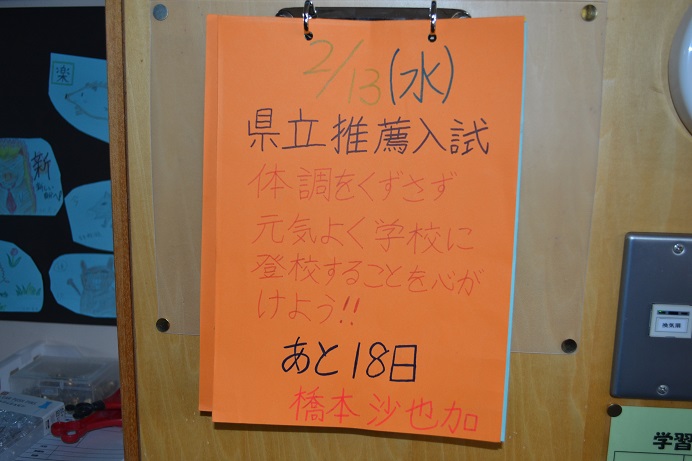 2/13(水)
県立推薦入試
体調をくずさず
元気よく学校に
登校することを心が
けよう!!
あと18日
橋本沙也加
楽
新
換気扇
学習